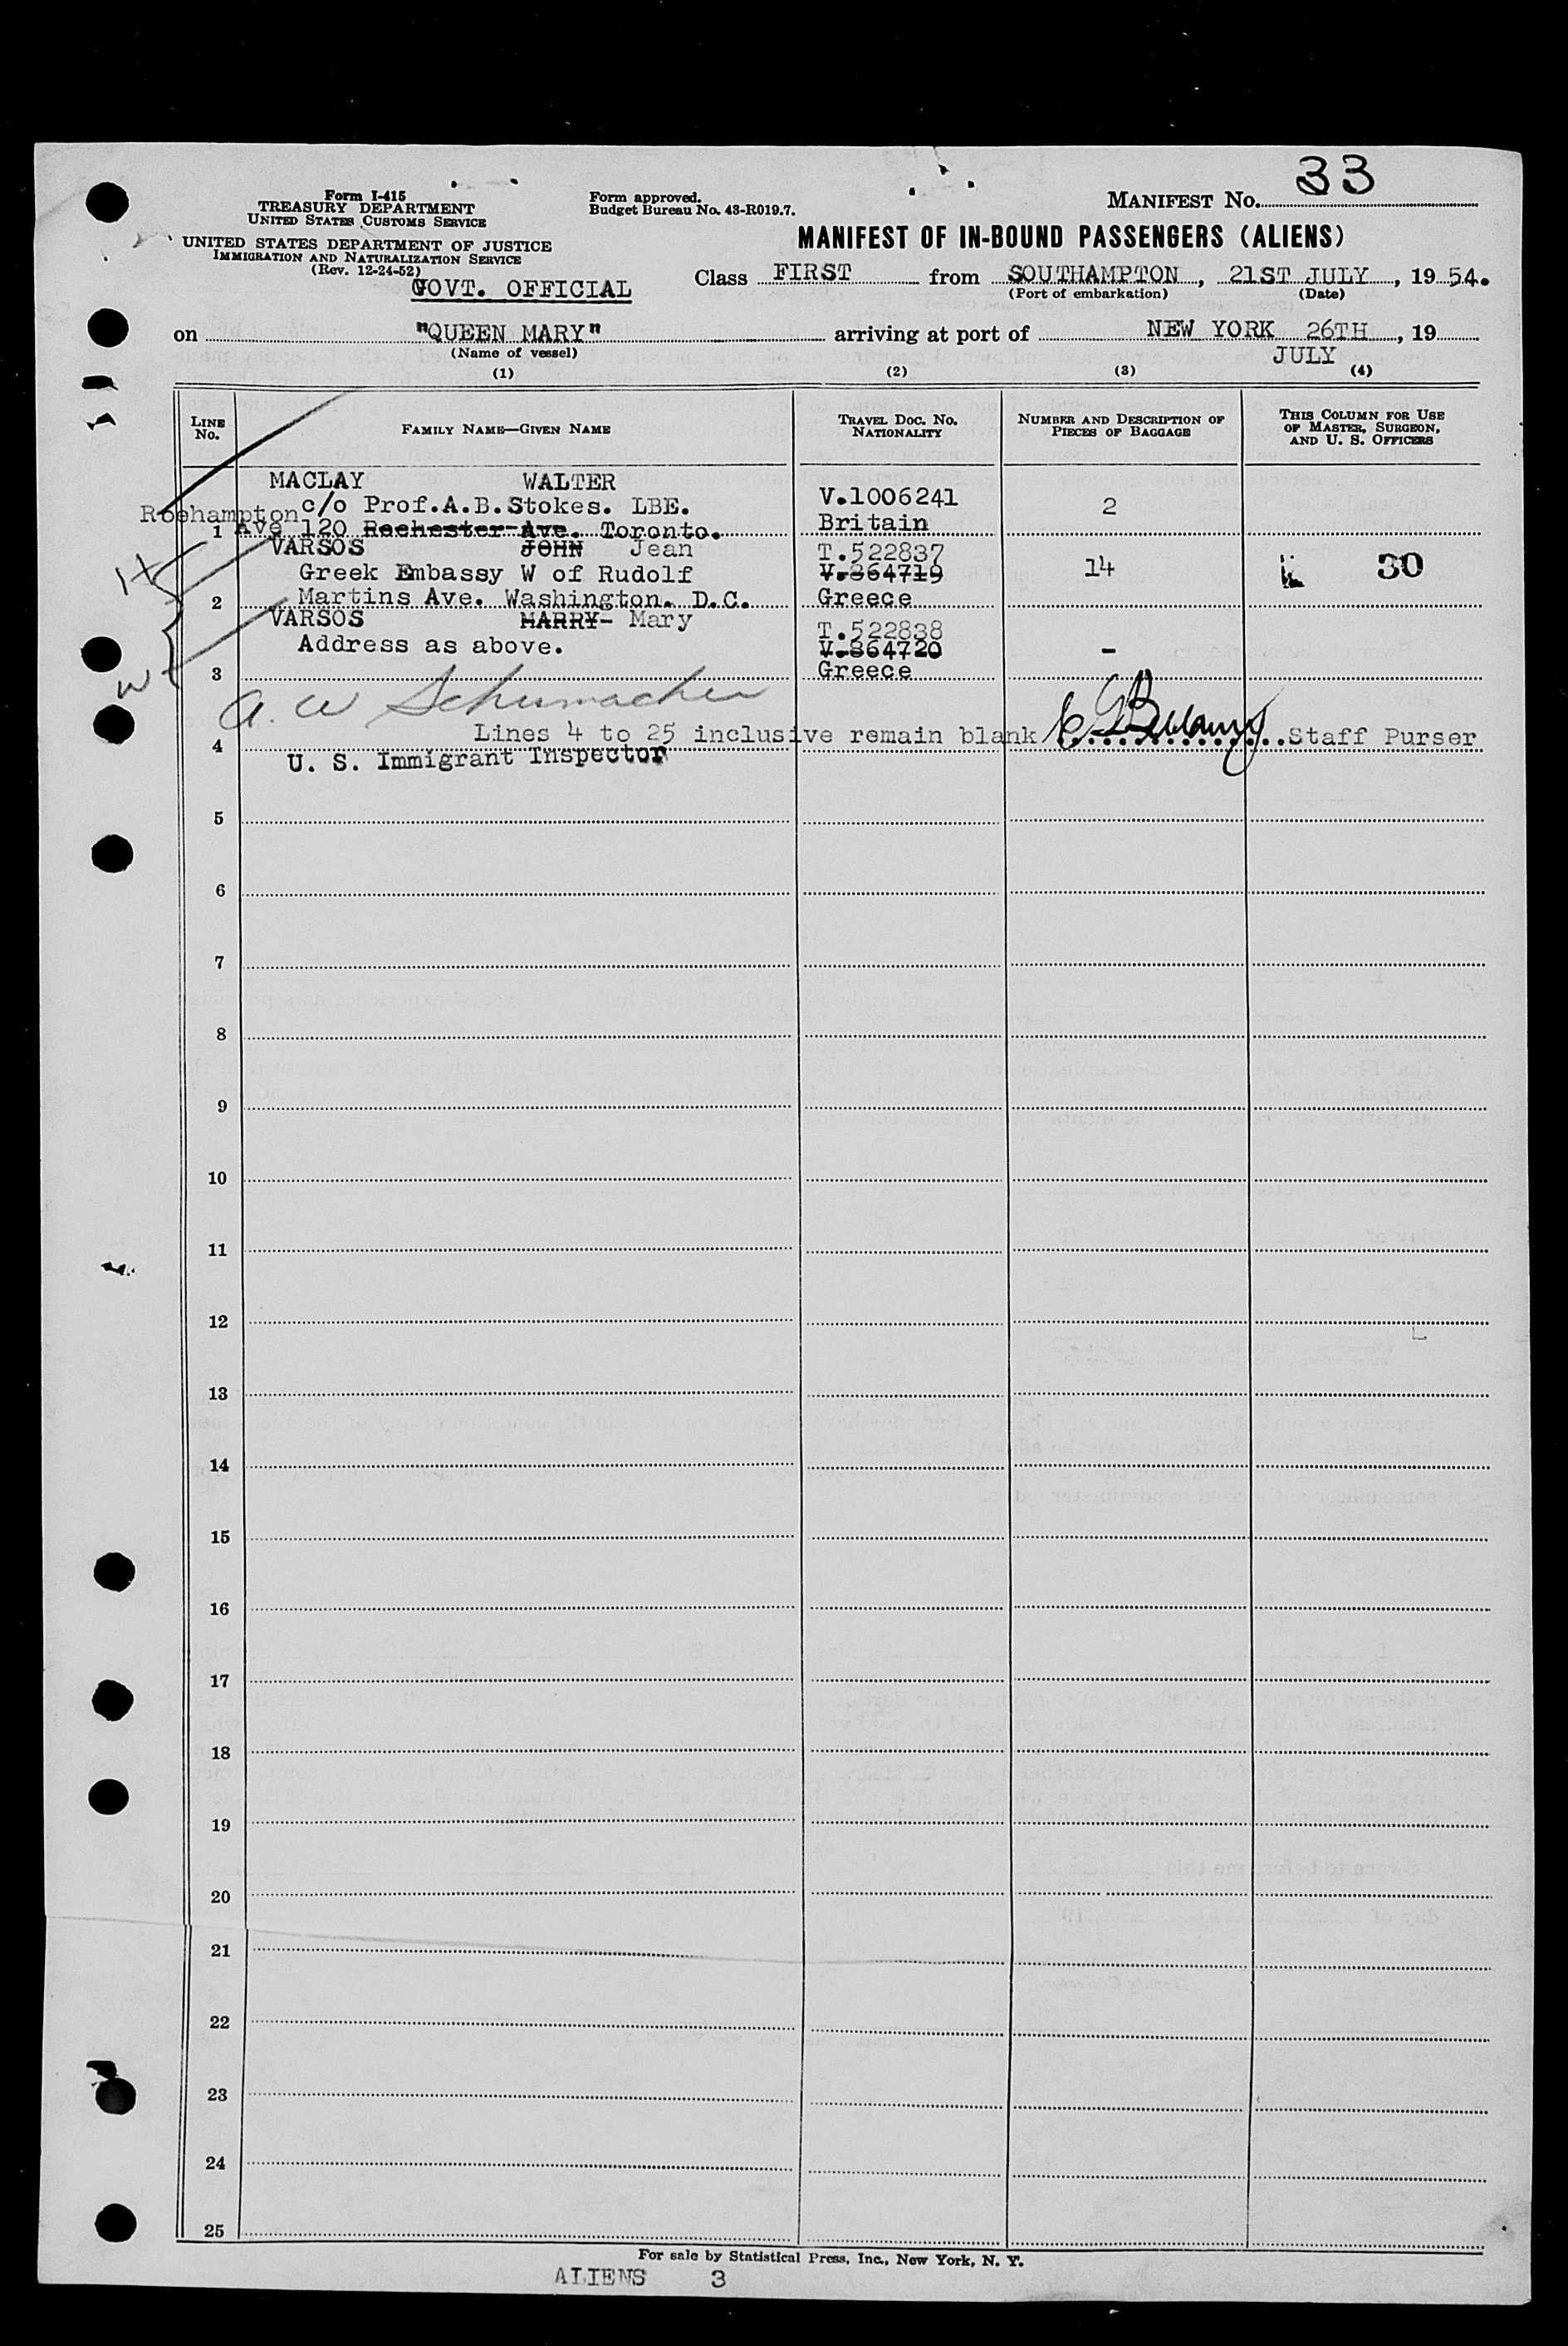 33
Form I-415
TREASURY DEPARTMENT
UNITED STATES CUSTOMS SERVICE
Form approved.
Budget Bureau No. 43-R019.7.
MANIFEST No.
UNITED STATES DEPARTMENT OF JUSTICE
IMMIGRATION AND NATURALIZATION SERVICE
(Rev. 12-24-52)
MANIFEST OF IN-BOUND PASSENGERS (ALIENS)
GOVT. OFFICIAL
Class FIRST from SOUTHAMPTON, 21ST JULY, 19 54.
(Port of embarkation) (Date)
on "QUEEN MARY" arriving at port of NEW YORK 26TH, 19
(Name of vessel) JULY
(1) (2) (3) (4)
LINE No. FAMILY NAME—GIVEN NAME TRAVEL DOC. No. NATIONALITY NUMBER AND DESCRIPTION OF PIECES OF BAGGAGE THIS COLUMN FOR USE OF MASTER, SURGEON, AND U. S. OFFICERS
MACLAY WALTER V.1006241 2
Roehampton c/o Prof.A.B.Stokes. LBE. Britain
1 Ave 120 Rochester Ave. Toronto.
VARSOS JOHN Jean T.522837
Greek Embassy W of Rudolf V.864719 14 30
2 Martins Ave. Washington. D.C. Greece
VARSOS MARRY- Mary T.522838
Address as above. V.864720 -
3 Greece
A. W Schumacher
4 Lines 4 to 25 inclusive remain blank Staff Purser
U. S. Immigrant Inspector
5
6
7
8
9
10
11
12
13
14
15
16
17
18
19
20
21
22
23
24
25
For sale by Statistical Press, Inc., New York, N. Y.
ALIENS 3